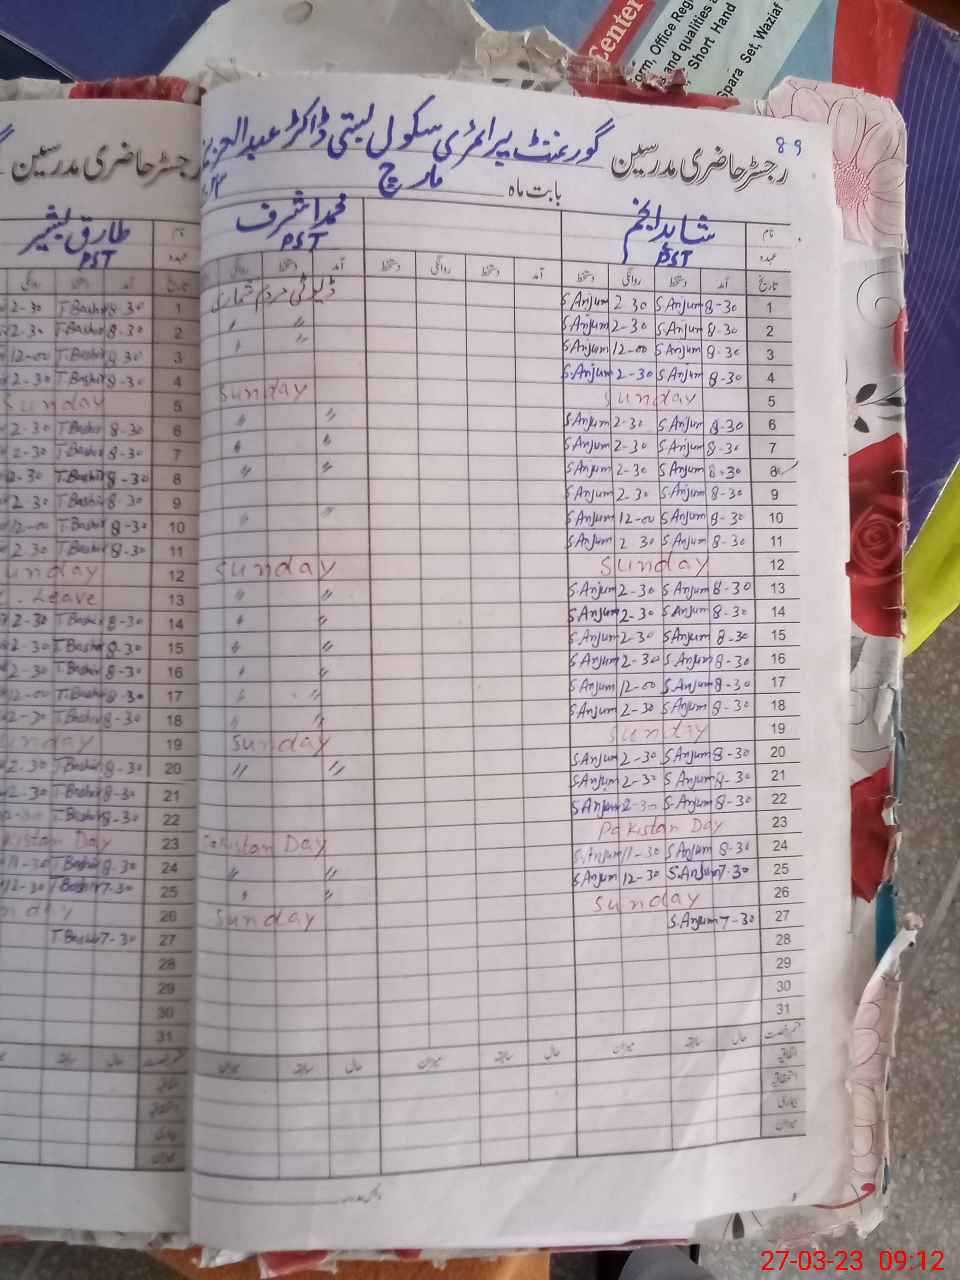 Center
orm, Office Reg
s and qualities a
Short Hand
Spara Set, Waziaf
89
رجسٹر حاضری مدرسین گورنمنٹ پرائمری سکول بستی ڈاکٹر عبدالعزیز
بابت ماہ مارچ
نام شاہد انجم محمد اشرف
عہدہ PST PST
تاریخ آمد دستخط روانگی دستخط آمد دستخط روانگی دستخط آمد دستخط روانگی
ڈیوٹی مردم شماری
S.Anjum 2-30 S.Anjum 8-30 1
" " S.Anjum 2-30 S.Anjum 8-30 2
" " S.Anjum 12-00 S.Anjum 8-30 3
S.Anjum 2-30 S.Anjum 8-30 4
Sunday Sunday 5
" " S.Anjum 2-30 S.Anjum 8-30 6
" " S.Anjum 2-30 S.Anjum 8-30 7
" " S.Anjum 2-30 S.Anjum 8-30 8
S.Anjum 2-30 S.Anjum 8-30 9
" " S.Anjum 12-00 S.Anjum 8-30 10
S.Anjum 2-30 S.Anjum 8-30 11
Sunday Sunday 12
" " S.Anjum 2-30 S.Anjum 8-30 13
" " S.Anjum 2-30 S.Anjum 8-30 14
" " S.Anjum 2-30 S.Anjum 8-30 15
" " S.Anjum 2-30 S.Anjum 8-30 16
" " S.Anjum 12-00 S.Anjum 8-30 17
" " S.Anjum 2-30 S.Anjum 8-30 18
Sunday Sunday 19
" " S.Anjum 2-30 S.Anjum 8-30 20
S.Anjum 2-30 S.Anjum 8-30 21
S.Anjum 2-30 S.Anjum 8-30 22
Pakistan Day Pakistan Day 23
" " S.Anjum 11-30 S.Anjum 8-30 24
" " S.Anjum 12-30 S.Anjum 7-30 25
Sunday Sunday 26
S.Anjum 7-30 27
28
29
30
31
حال سابقہ میزان حال سابقہ میزان حال سابقہ میزان
رجسٹر حاضری مدرسین
نام طارق بشیر
عہدہ PST
تاریخ آمد
2-30 T.Bashir 8-30 1
2-30 T.Bashir 8-30 2
12-00 T.Bashir 8-30 3
2-30 T.Bashir 8-30 4
Sunday 5
2-30 T.Bashir 8-30 6
2-30 T.Bashir 8-30 7
2-30 T.Bashir 8-30 8
2-30 T.Bashir 8-30 9
12-00 T.Bashir 8-30 10
2-30 T.Bashir 8-30 11
unday 12
Leave 13
2-30 T.Bashir 8-30 14
2-30 T.Bashir 8-30 15
2-30 T.Bashir 8-30 16
12-00 T.Bashir 8-30 17
2-30 T.Bashir 8-30 18
unday 19
2-30 T.Bashir 8-30 20
2-30 T.Bashir 8-30 21
2-30 T.Bashir 8-30 22
kistan Day 23
11-30 T.Bashir 8-30 24
12-30 T.Bashir 7-30 25
nday 26
T.Bashir 7-30 27
28
29
30
31
حال سابقہ
27-03-23 09:12